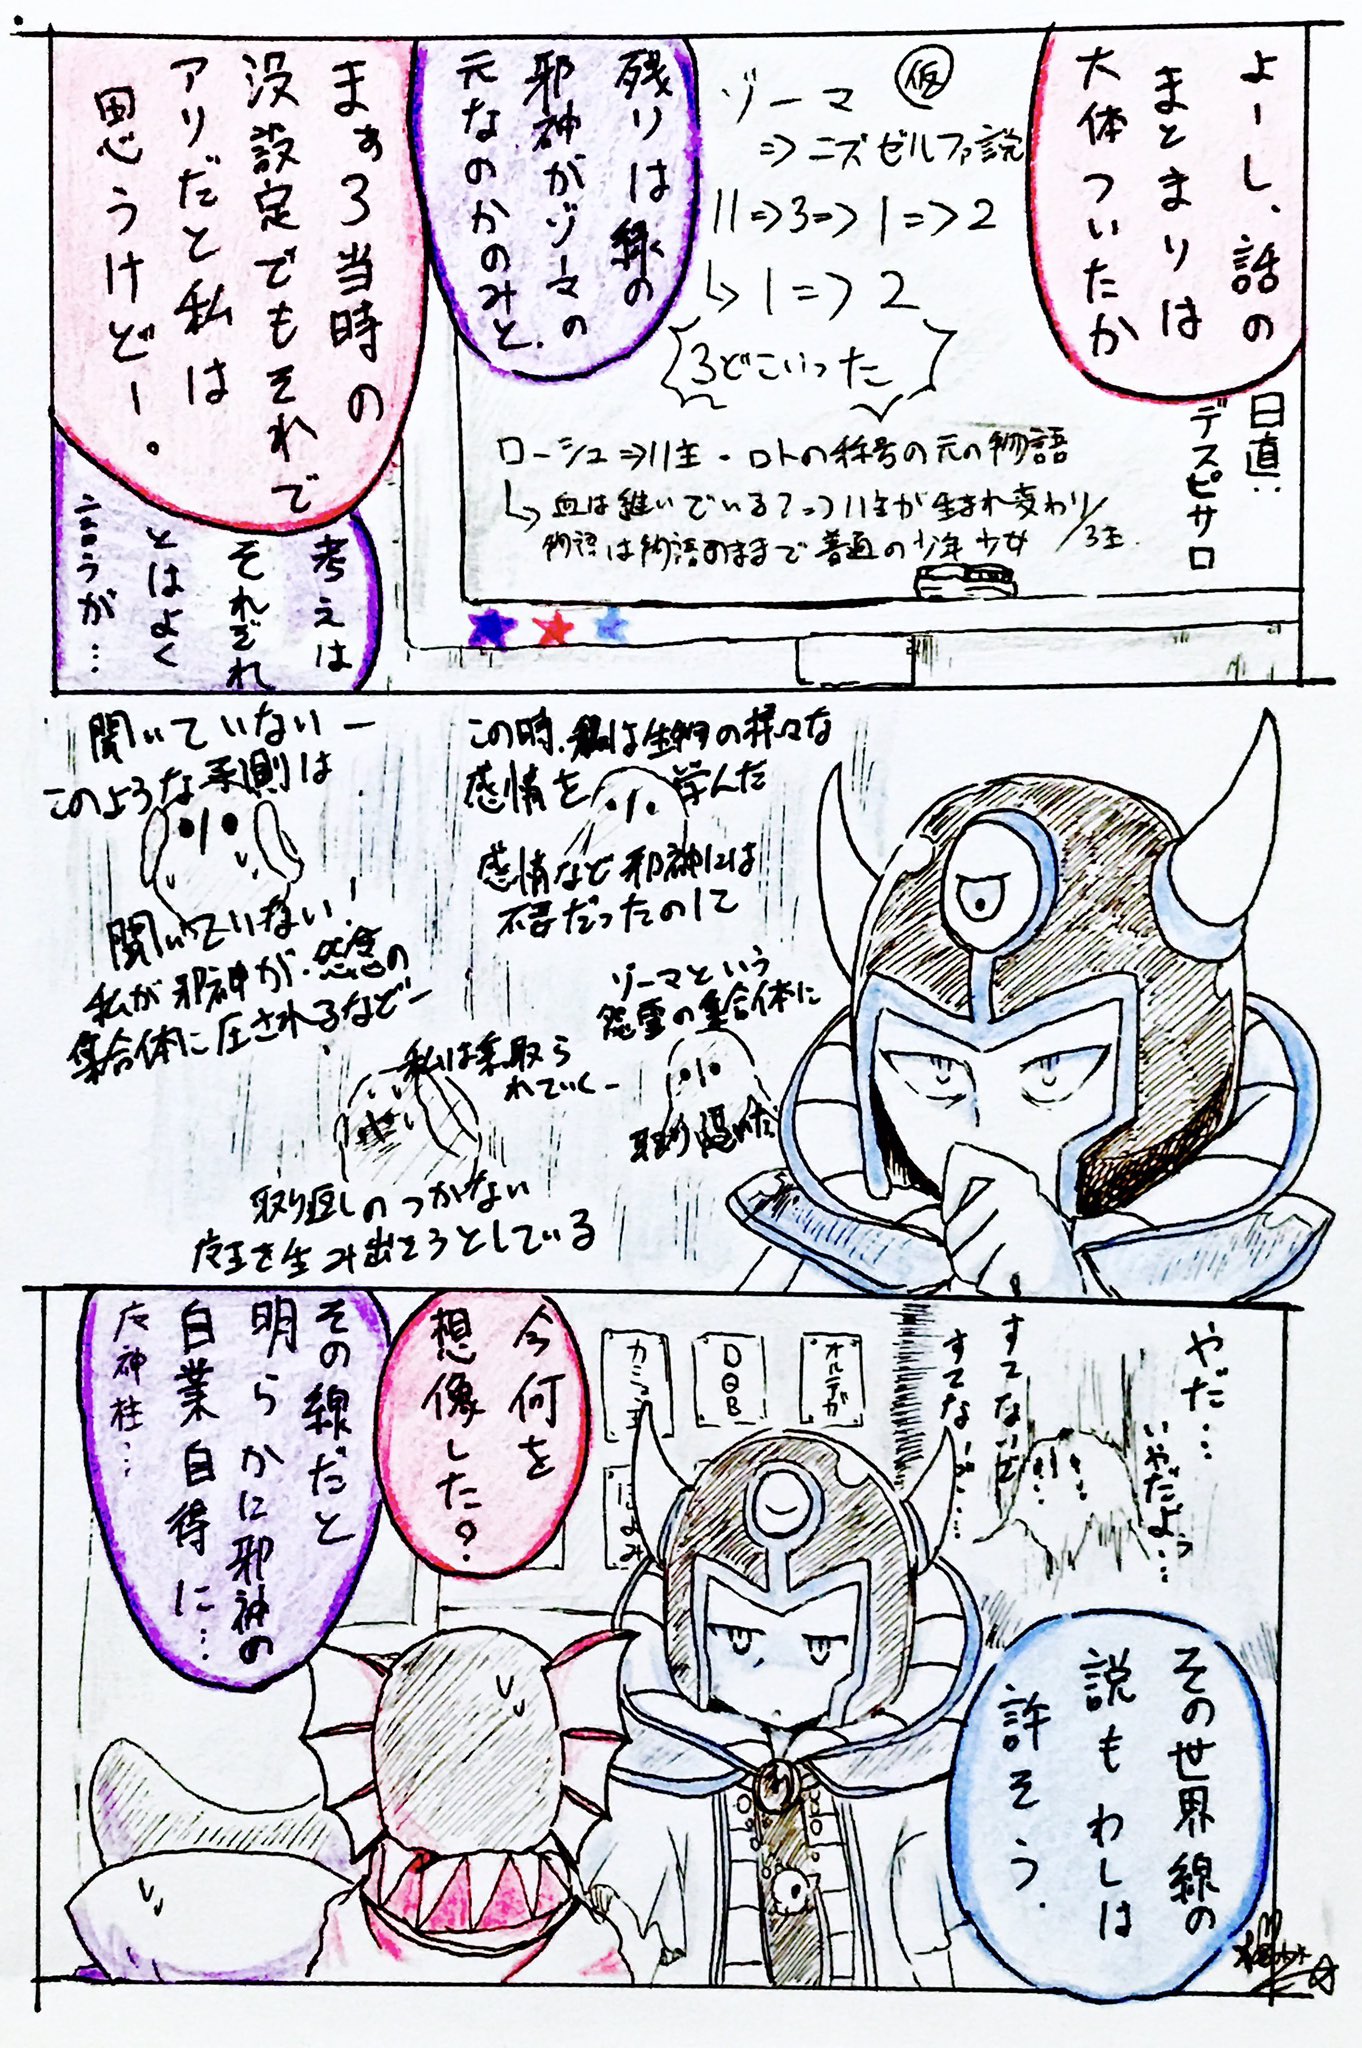 よーし、話の
まとまりは
大体ついたか
仮
ゾーマ
⇒ニズゼルファ説
11⇒3⇒1⇒2
↳1⇒2
3どこいった
日直:
デスピサロ
ローシュ⇒11主・ロトの称号の元の物語
↳血は継いでいる?⇒11主が生まれ変わり/3主
物語は物語のままで普通の少年少女
残りは
邪神がゾーマの
元なのかのみと、
まぁ3当時の
没設定でもそれで
アリだと私は
思うけどー。
考えは
それぞれ
とはよく
言うが…
この時、私は生物の様々な
感情を学んだ
感情など邪神には
不要だったのに
ゾーマという
怨霊の集合体に
取り込んだ
聞いていないー
このような予測は
聞いていない!
私が邪神が、怨念の
集合体に圧されるなどー
私は乗っ取ら
れていくー
取り返しのつかない
魔王を生み出そうとしている
やだ…
いやだよぅ…
すてないで
すてな…で…
オルテガ
DQB
カミュ
その世界線の
説もわしは
許そう.
今何を
想像した?
その線だと
明らかに邪神の
自業自得に…
魔神柱…